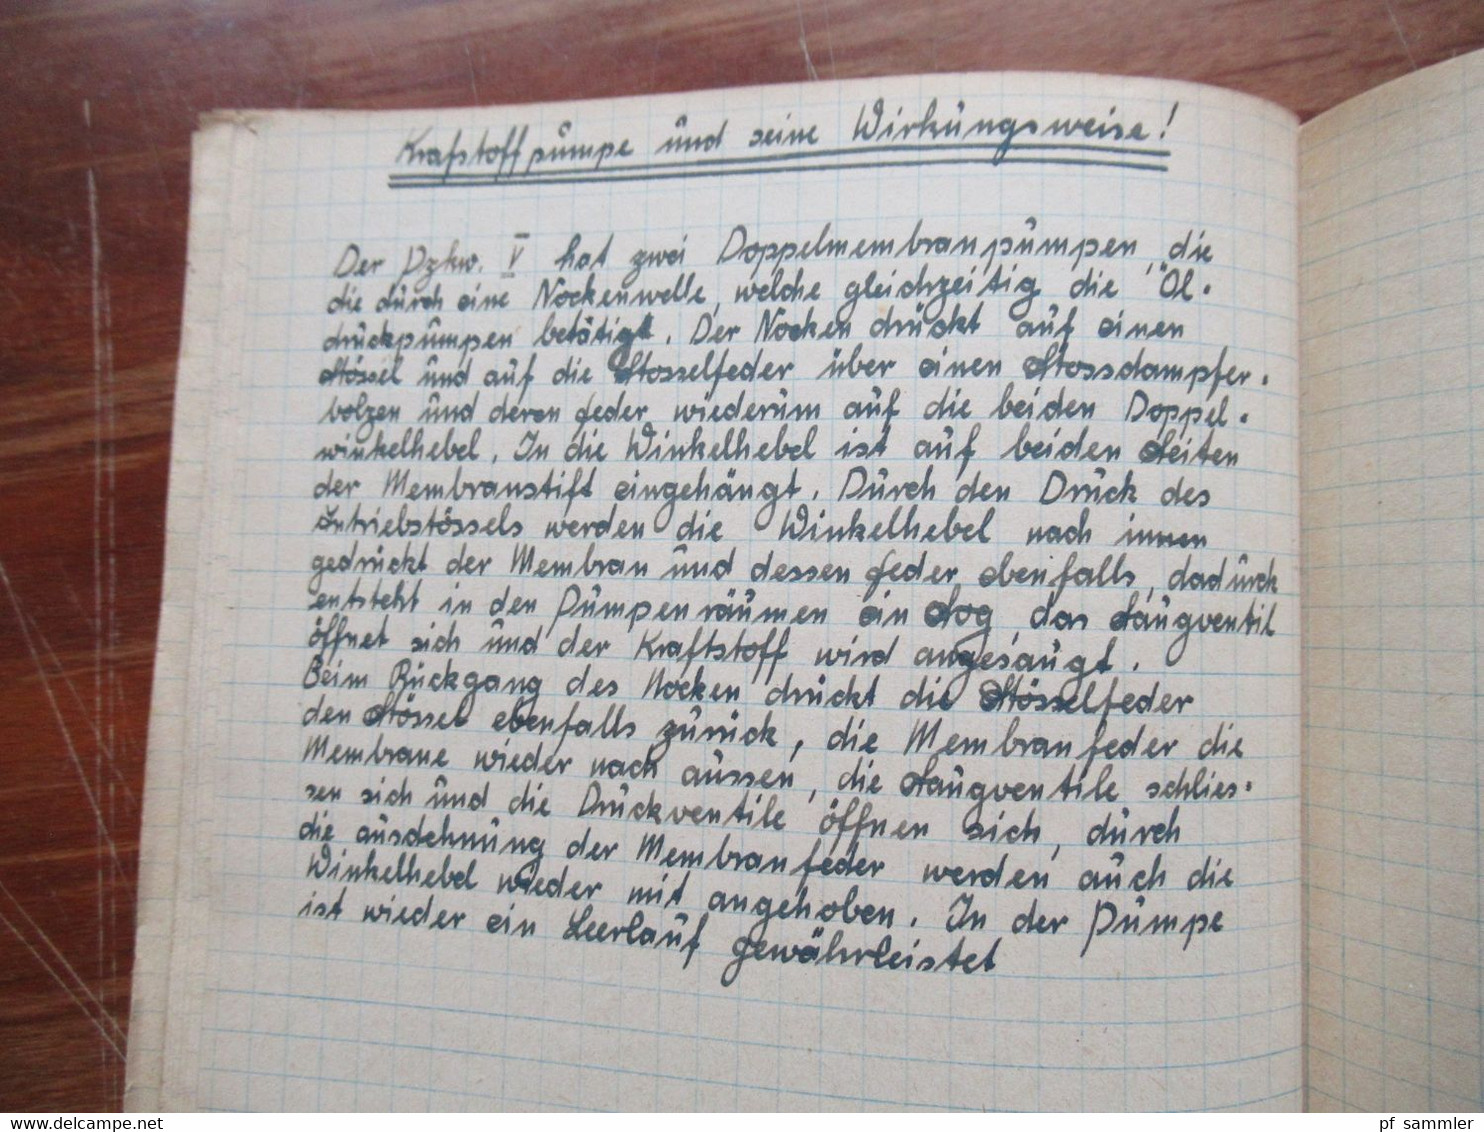 Krafstoffpumpe und seine Wirkungsweise!
Der Pzkw. V hat zwei Doppelmembranpumpen, die
die durch eine Nockenwelle, welche gleichzeitig die Öl-
druckpumpen betätigt. Der Nocken drückt auf einen
Stössel und auf die Stosselfeder über einen Stossdampfer-
bolzen und deren feder wiederum auf die beiden Doppel-
winkelhebel. In die Winkelhebel ist auf beiden Seiten
der Membranstift eingehängt. Durch den Druck des
Antriebstössels werden die Winkelhebel nach innen
gedrückt der Membran und dessen feder ebenfalls, dadurch
entsteht in den Pumpenräumen ein Sog, das Saugventil
öffnet sich und der Kraftstoff wird angesaugt.
Beim Rückgang des Nocken drückt die Stösselfeder
den Stössel ebenfalls zurück, die Membranfeder die
Membrane wieder nach aussen, die Saugventile schlies-
sen sich und die Druckventile öffnen sich, durch
die ausdehnung der Membranfeder werden auch die
Winkelhebel wieder mit angehoben. In der Pumpe
ist wieder ein Leerlauf gewährleistet
pf sammler
delcampe.net